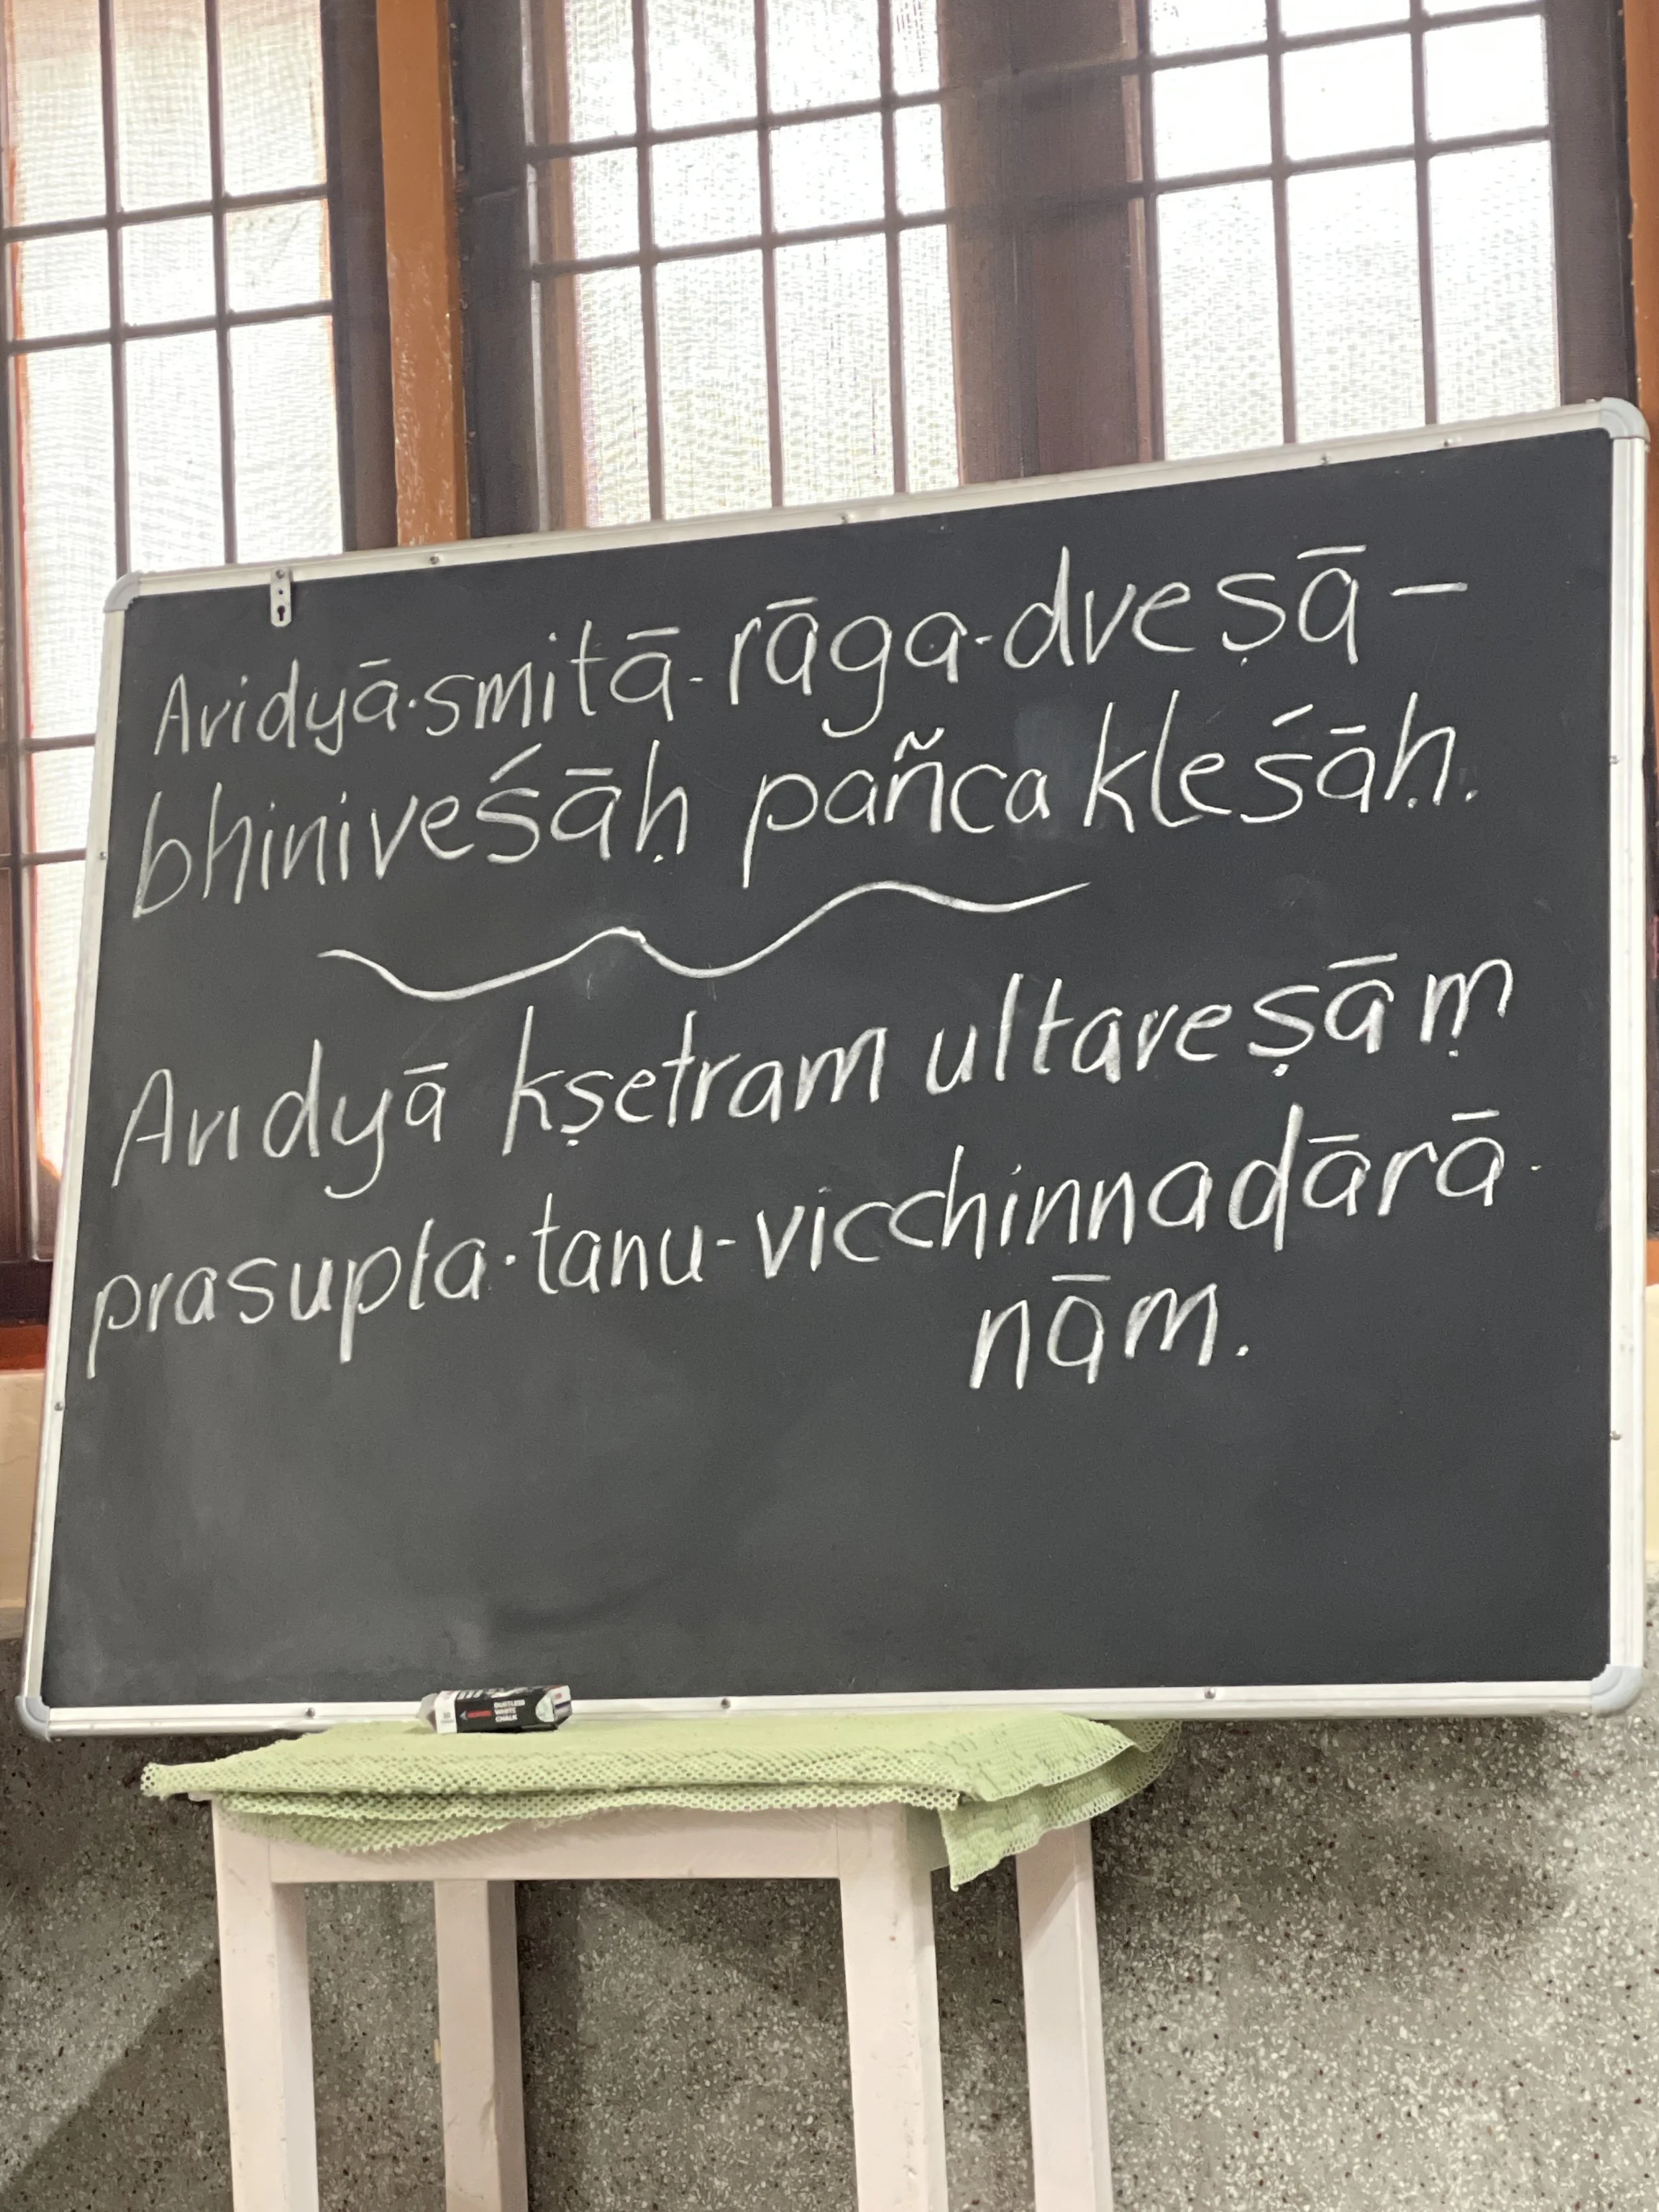 Avidyā-smitā-rāga-dveṣā-
bhiniveśāḥ pañca kleśāḥ.
Avidyā kṣetram ultareṣāṃ
prasupta-tanu-vicchinnadārā-
nām.
DUSTLESS
WHITE
CHALK